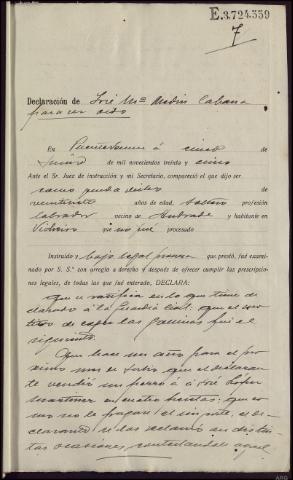 E.3.724.559
7
Declaración de José Mª Cabana
para ser oido
En Puentedeume á cinco de
Junio de mil novecientos treinta y cinco
Ante el Sr. Juez de instrucción y mi Secretario, compareció el que dijo ser
como queda dicho de
años de edad, soltero profesión
labrador vecino de Andrade y habitante en
que no fué procesado
Instruido y bajo legal que prestó, fué examinado
por S. Sª. con arreglo a derecho y después de ofrecer cumplir las prescripcio-
nes legales, de todas las que fué enterado, DECLARA:
que se ratifica en lo que tiene de-
clarado á la Guardia Civil, que el mo-
tivo de coger las gallinas fué el
siguiente.
Que hace un año para el pró-
ximo mes de que el declarante
le vendió un perro á José López
Martinez en cuatro pesetas; que co-
mo no le pagara el importe, el de-
clarante se las reclamó en distin-
tas ocasiones, contestandole aquel